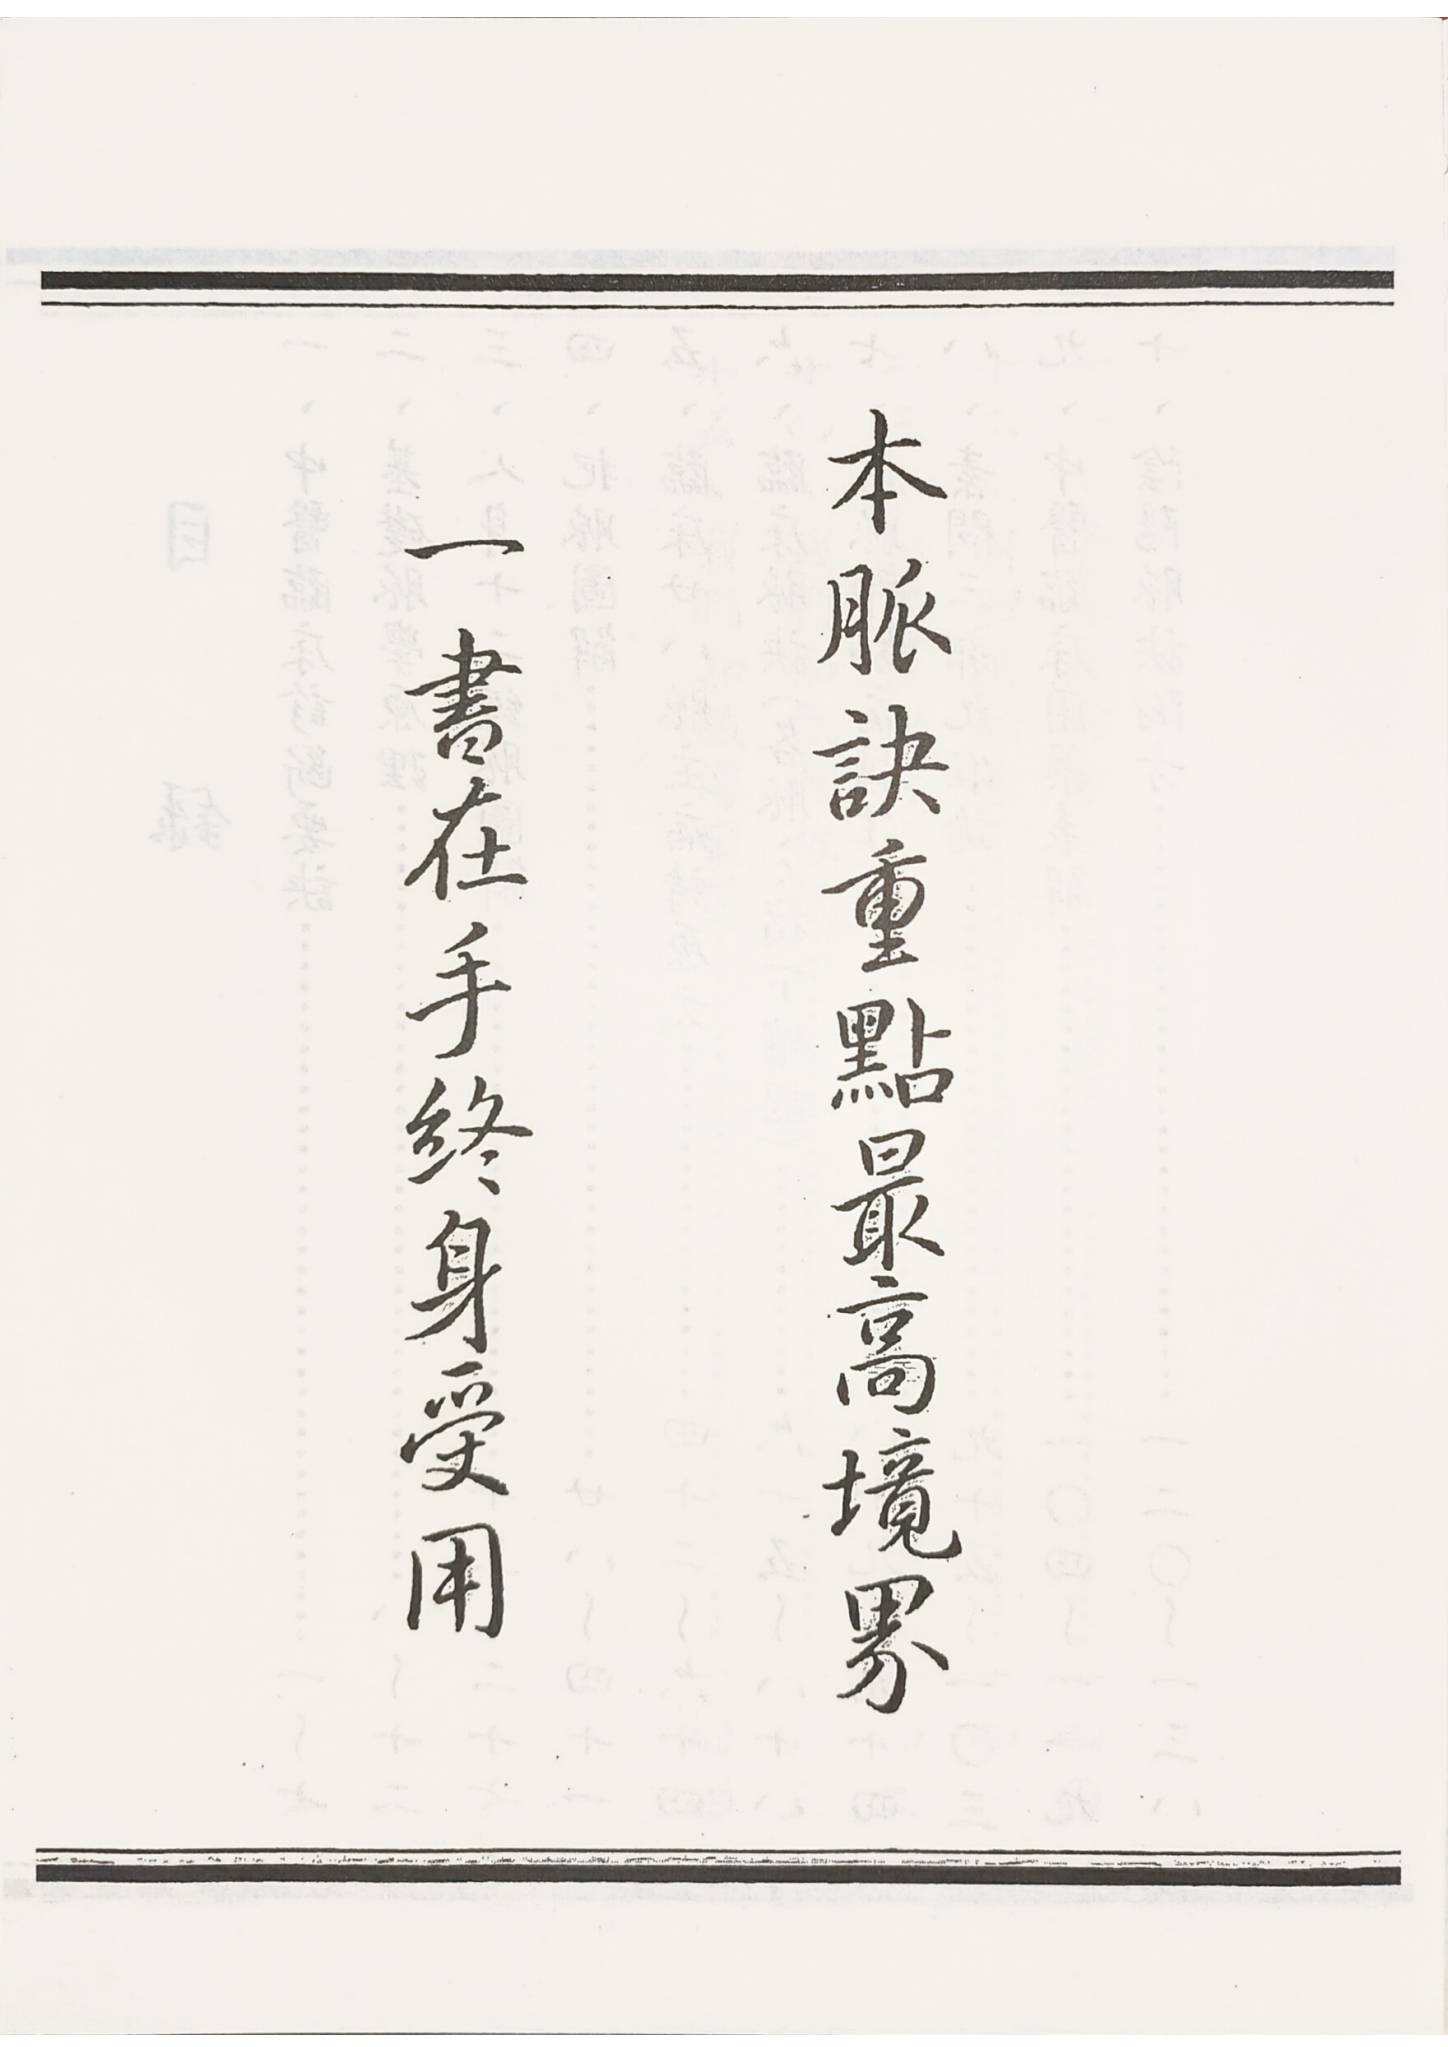 本脈訣重點最高境界
一書在手終身受用